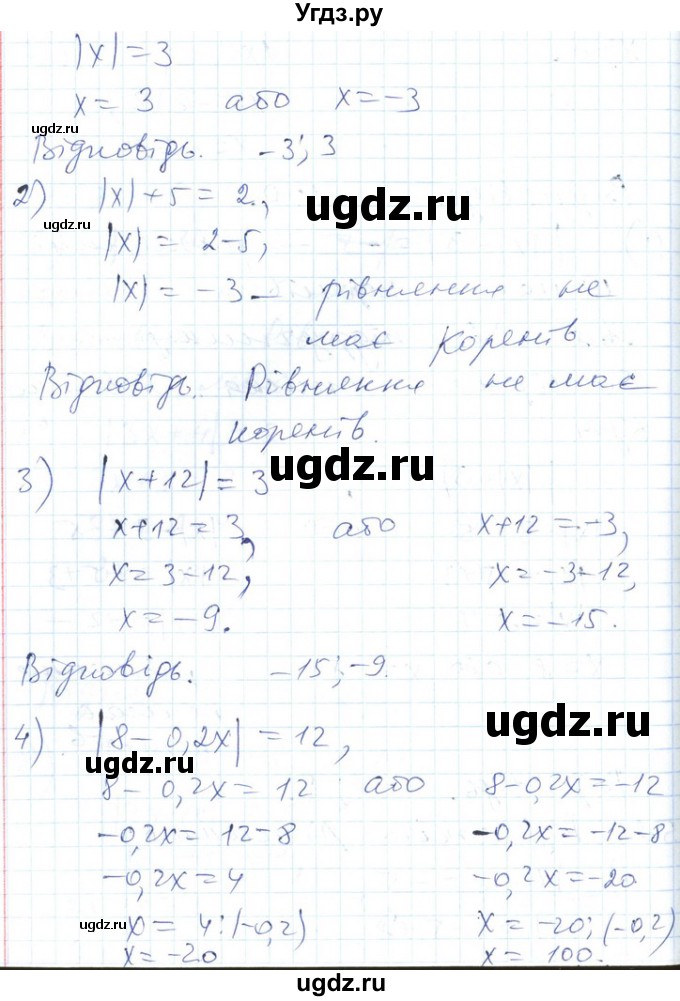 Угдз.ру
|x| = 3
x = 3 або x = -3
Відповідь. -3; 3
2) |x| + 5 = 2,
|x| = 2-5,
|x| = -3 – рівняння не
має коренів.
Відповідь. Рівняння не має
коренів.
3) |x+12| = 3
x+12 = 3, або x+12 = -3,
x = 3-12, x = -3-12,
x = -9. x = -15.
Відповідь: -15; -9.
4) |8 - 0,2x| = 12,
8 - 0,2x = 12 або 8-0,2x = -12
-0,2x = 12-8 -0,2x = -12-8
-0,2x = 4 -0,2x = -20
x = 4:(-0,2) x = -20:(-0,2)
x = -20 x = 100.
ugdz.ru
ugdz.ru
ugdz.ru
ugdz.ru
ugdz.ru
ugdz.ru
ugdz.ru
ugdz.ru
ugdz.ru